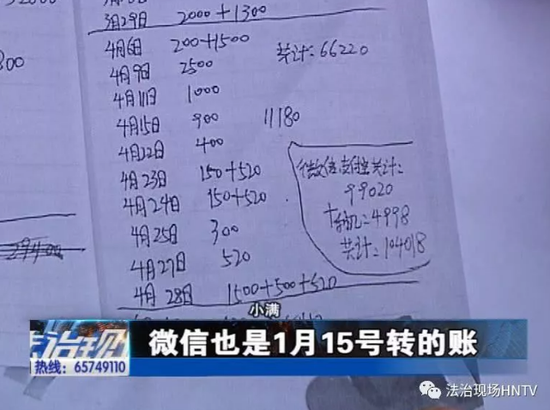 3月29日 2000+1300
4月6日 200+1500
共计:66220
4月9日 2500
4月11日 1000
4月15日 900 11180
4月22日 400
4月23日 150+520
4月24日 150+520
4月25日 300
4月27日 520
4月28日 1500+500+520
共计:
99020
4998
共计:104018
29400
小满
微信也是1月15号转的账
法治现场
热线:65749110
法治现场HNTV